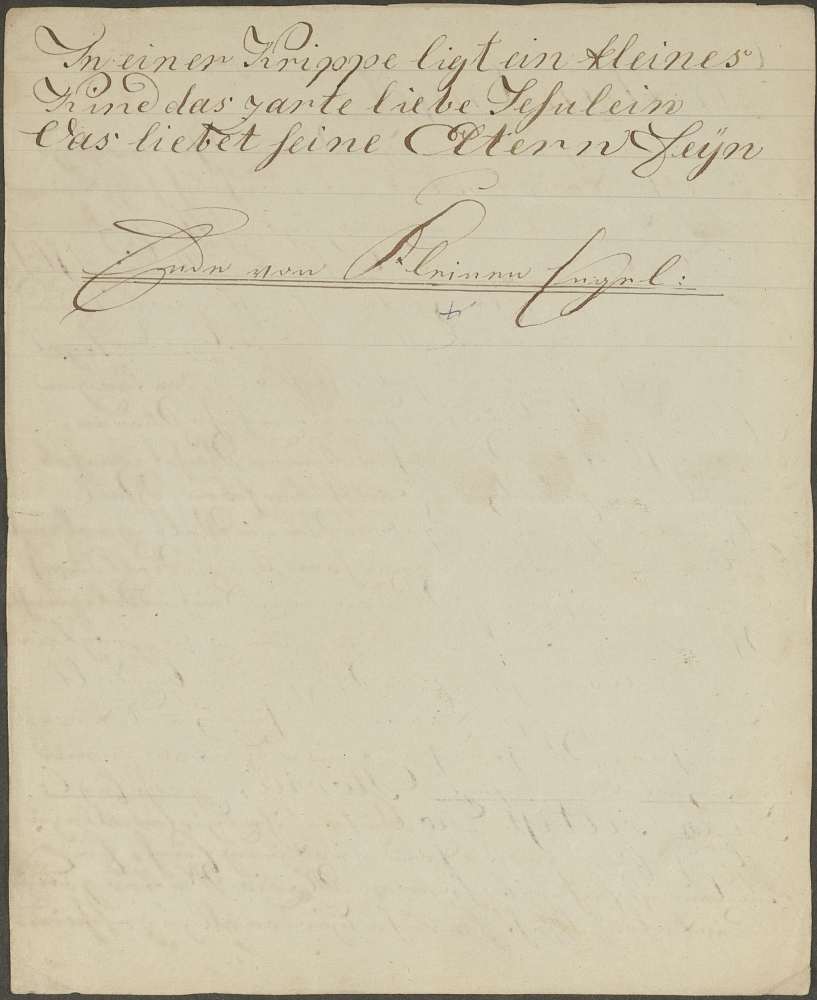 In einer Krippe ligt ein kleines
Kind das zarte liebe Jesulein
Das liebet seine Eltern Seÿn
Ende von Kleinen Engel: